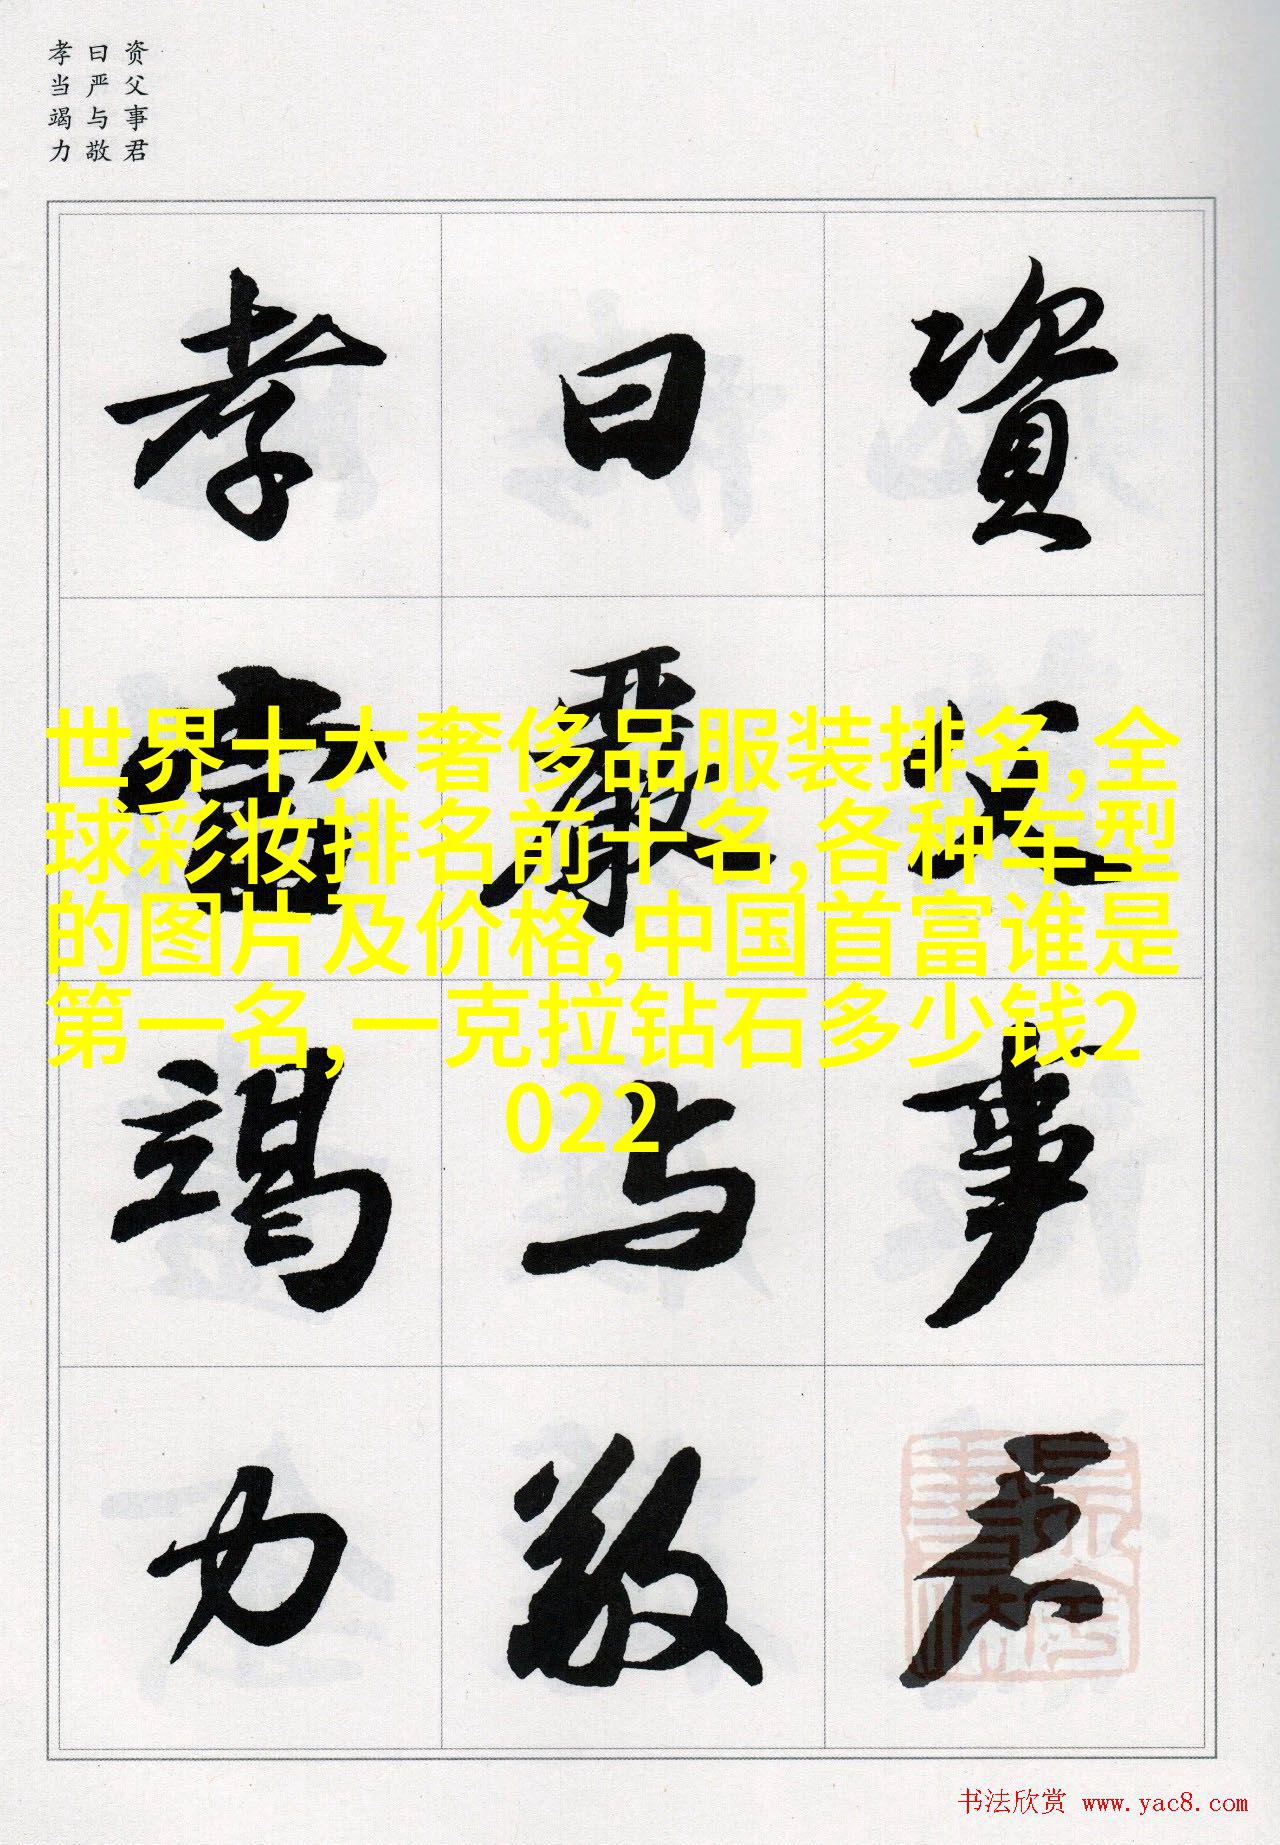 资父事君
曰严与敬
孝当竭力
資父事君
曰嚴与敬
孝當竭力
世界十大奢侈品服装排名,全
球彩妆排名前十名,各种车型
的图片及价格,中国首富谁是
第一名,一克拉钻石多少钱2
022
书法欣赏 www.yac8.com